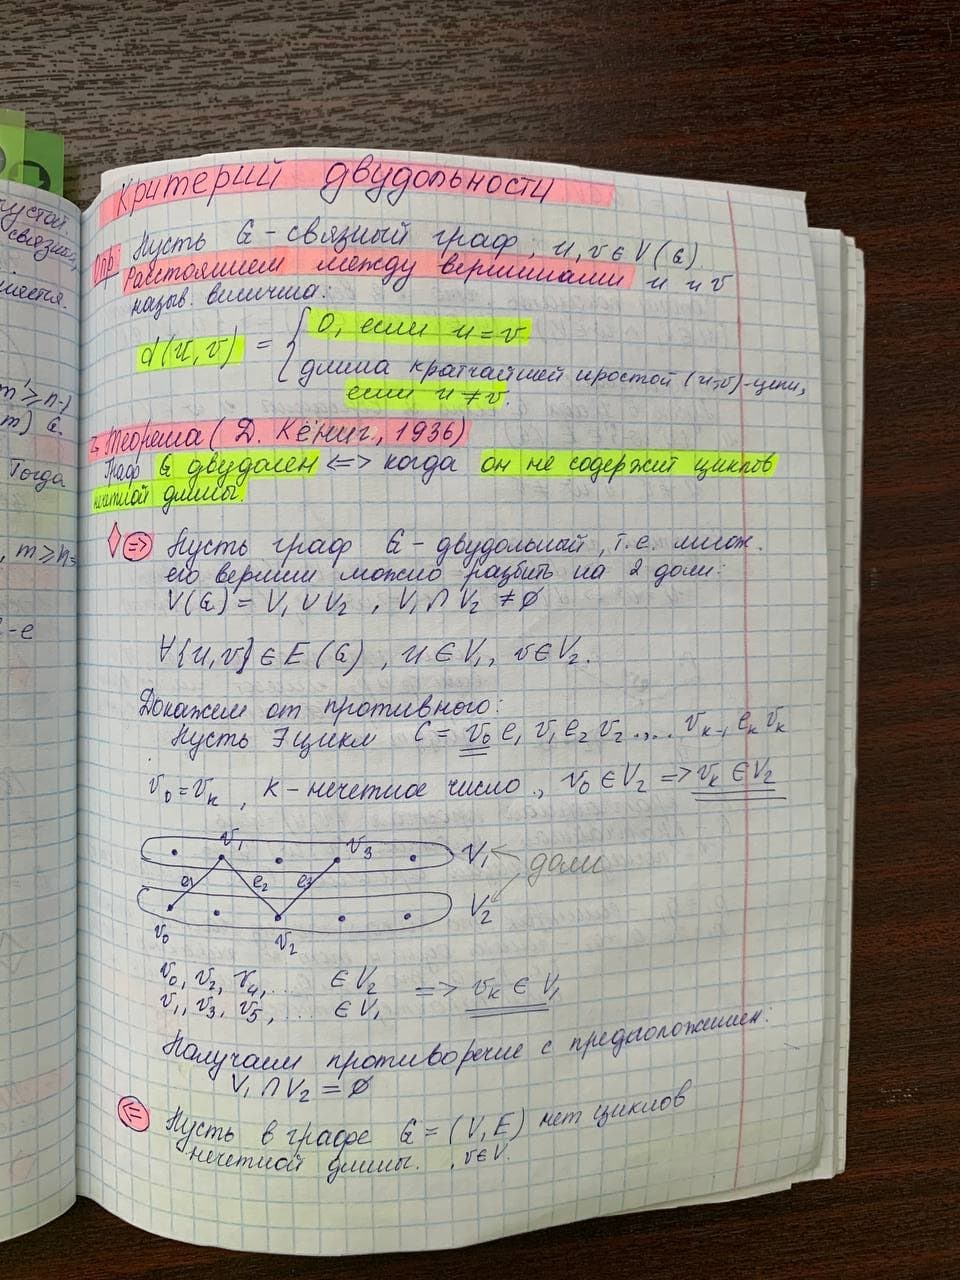 пустой
связный,
m'≥n-1
m) G.
Тогда
, m≥n-
-e
Критерий двудольности
Опр: Пусть G - связный граф, u, v ∈ V(G)
Расстоянием между вершинами u и v
назыв. величина:
d(u,v) = { 0, если u = v
длина кратчайшей простой (u,v)-цепи,
если u ≠ v.
Теорема (Д. Кёниг, 1936)
Граф G двудолен <=> когда он не содержит циклов
нечетной длины.
=> Пусть граф G - двудольный, т.е. множ.
его вершин можно разбить на 2 доли:
V(G) = V₁ ∪ V₂ , V₁ ∩ V₂ ≠ ∅
∀{u,v} ∈ E(G) , u ∈ V₁, v ∈ V₂.
Докажем от противного:
Пусть ∃ цикл C = v₀ e₁ v₁ e₂ v₂ ... vₖ₋₁ eₖ vₖ
v₀ = vₖ , k - нечетное число, v₀ ∈ V₂ => vₖ ∈ V₂
v₁ v₃ V₁ доли
e₁ e₂ e₃
V₂
v₀ v₂
v₀, v₂, v₄, ... ∈ V₂ => vₖ ∈ V₁
v₁, v₃, v₅, ... ∈ V₁
Получаем противоречие с предположением:
V₁ ∩ V₂ = ∅
<= Пусть в графе G = (V, E) нет циклов
нечетной длины. , v∈V.